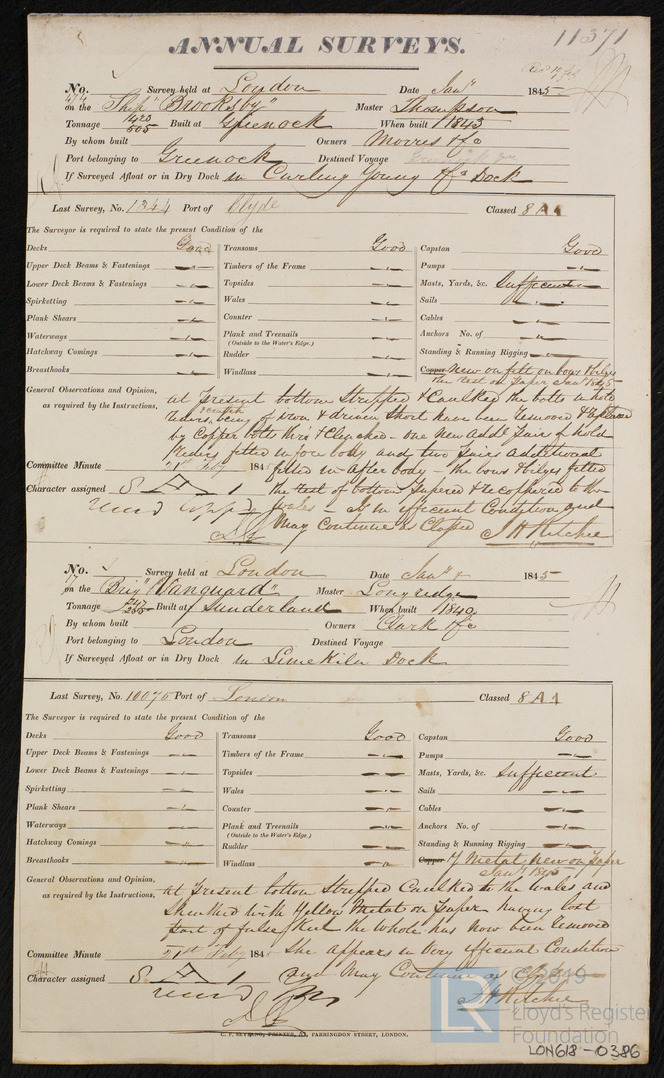 11371
ANNUAL SURVEYS.
No. 474 Survey held at London Date Jany 1845
on the Ship "Brooksby" Master Thompson
Tonnage 423/505 Built at Greenock When built 1843
By whom built Owners Morris & Co
Port belonging to Greenock Destined Voyage
If Surveyed Afloat or in Dry Dock in Curling Young & Co Dock
Last Survey, No. 1344 Port of Clyde Classed 8 A 1
The Surveyor is required to state the present Condition of the
Decks Good Transoms Good Capstan Good
Upper Deck Beams & Fastenings Timbers of the Frame Pumps
Lower Deck Beams & Fastenings Topsides Masts, Yards, &c. Sufficient
Spirketting Wales Sails
Plank Shears Counter Cables
Waterways Plank and Treenails Anchors No. of
(Outside to the Water's Edge.)
Hatchway Comings Rudder Standing & Running Rigging
Breasthooks Windlass Copper New on felt on bows & bilges
the rest on paper Jany 1845
General Observations and Opinion, as required by the Instructions,
at present bottom Stripped & Caulked the bolts in hold
riders, being of iron & driven Short have been removed & replaced
by Copper bolts thro' & Clenched - one New Addl. pair of Hold
riders fitted in fore body and two pairs additional
Committee Minute 21st Feby 184 fitted in after body - the bows & bilges felted
Character assigned 8 A 1 the rest of bottom papered & recoppered to the
wales - is in efficient Condition and
may Continue as Classed J H Ritchie
No. 17 Survey held at London Date Jany 8 1845
on the Brig "Vanguard" Master Longridge
Tonnage Built at Sunderland When built 1840
By whom built Owners Clark & Co
Port belonging to London Destined Voyage
If Surveyed Afloat or in Dry Dock in Lime Kiln Dock
Last Survey, No. 10070 Port of London Classed 8 A 1
The Surveyor is required to state the present Condition of the
Decks Good Transoms Good Capstan Good
Upper Deck Beams & Fastenings Timbers of the Frame Pumps
Lower Deck Beams & Fastenings Topsides Masts, Yards, &c. Sufficient
Spirketting Wales Sails
Plank Shears Counter Cables
Waterways Plank and Treenails Anchors No. of
(Outside to the Water's Edge.)
Hatchway Comings Rudder Standing & Running Rigging
Breasthooks Windlass Copper Y Metal new on paper
Jany 1845
General Observations and Opinion, as required by the Instructions,
at present bottom Stripped Caulked to the wales and
Sheathed with Yellow Metal on paper having lost
part of false Keel the whole has now been removed
Committee Minute 21st Feby 184 She appears in Very efficient Condition
Character assigned 8 A 1 and May Continue as Classed
J H Ritchie
C. F. SEYFANG, PRINTER, FARRINGDON STREET, LONDON.
©2019
LR Lloyd's Register
Foundation
LON618-0386